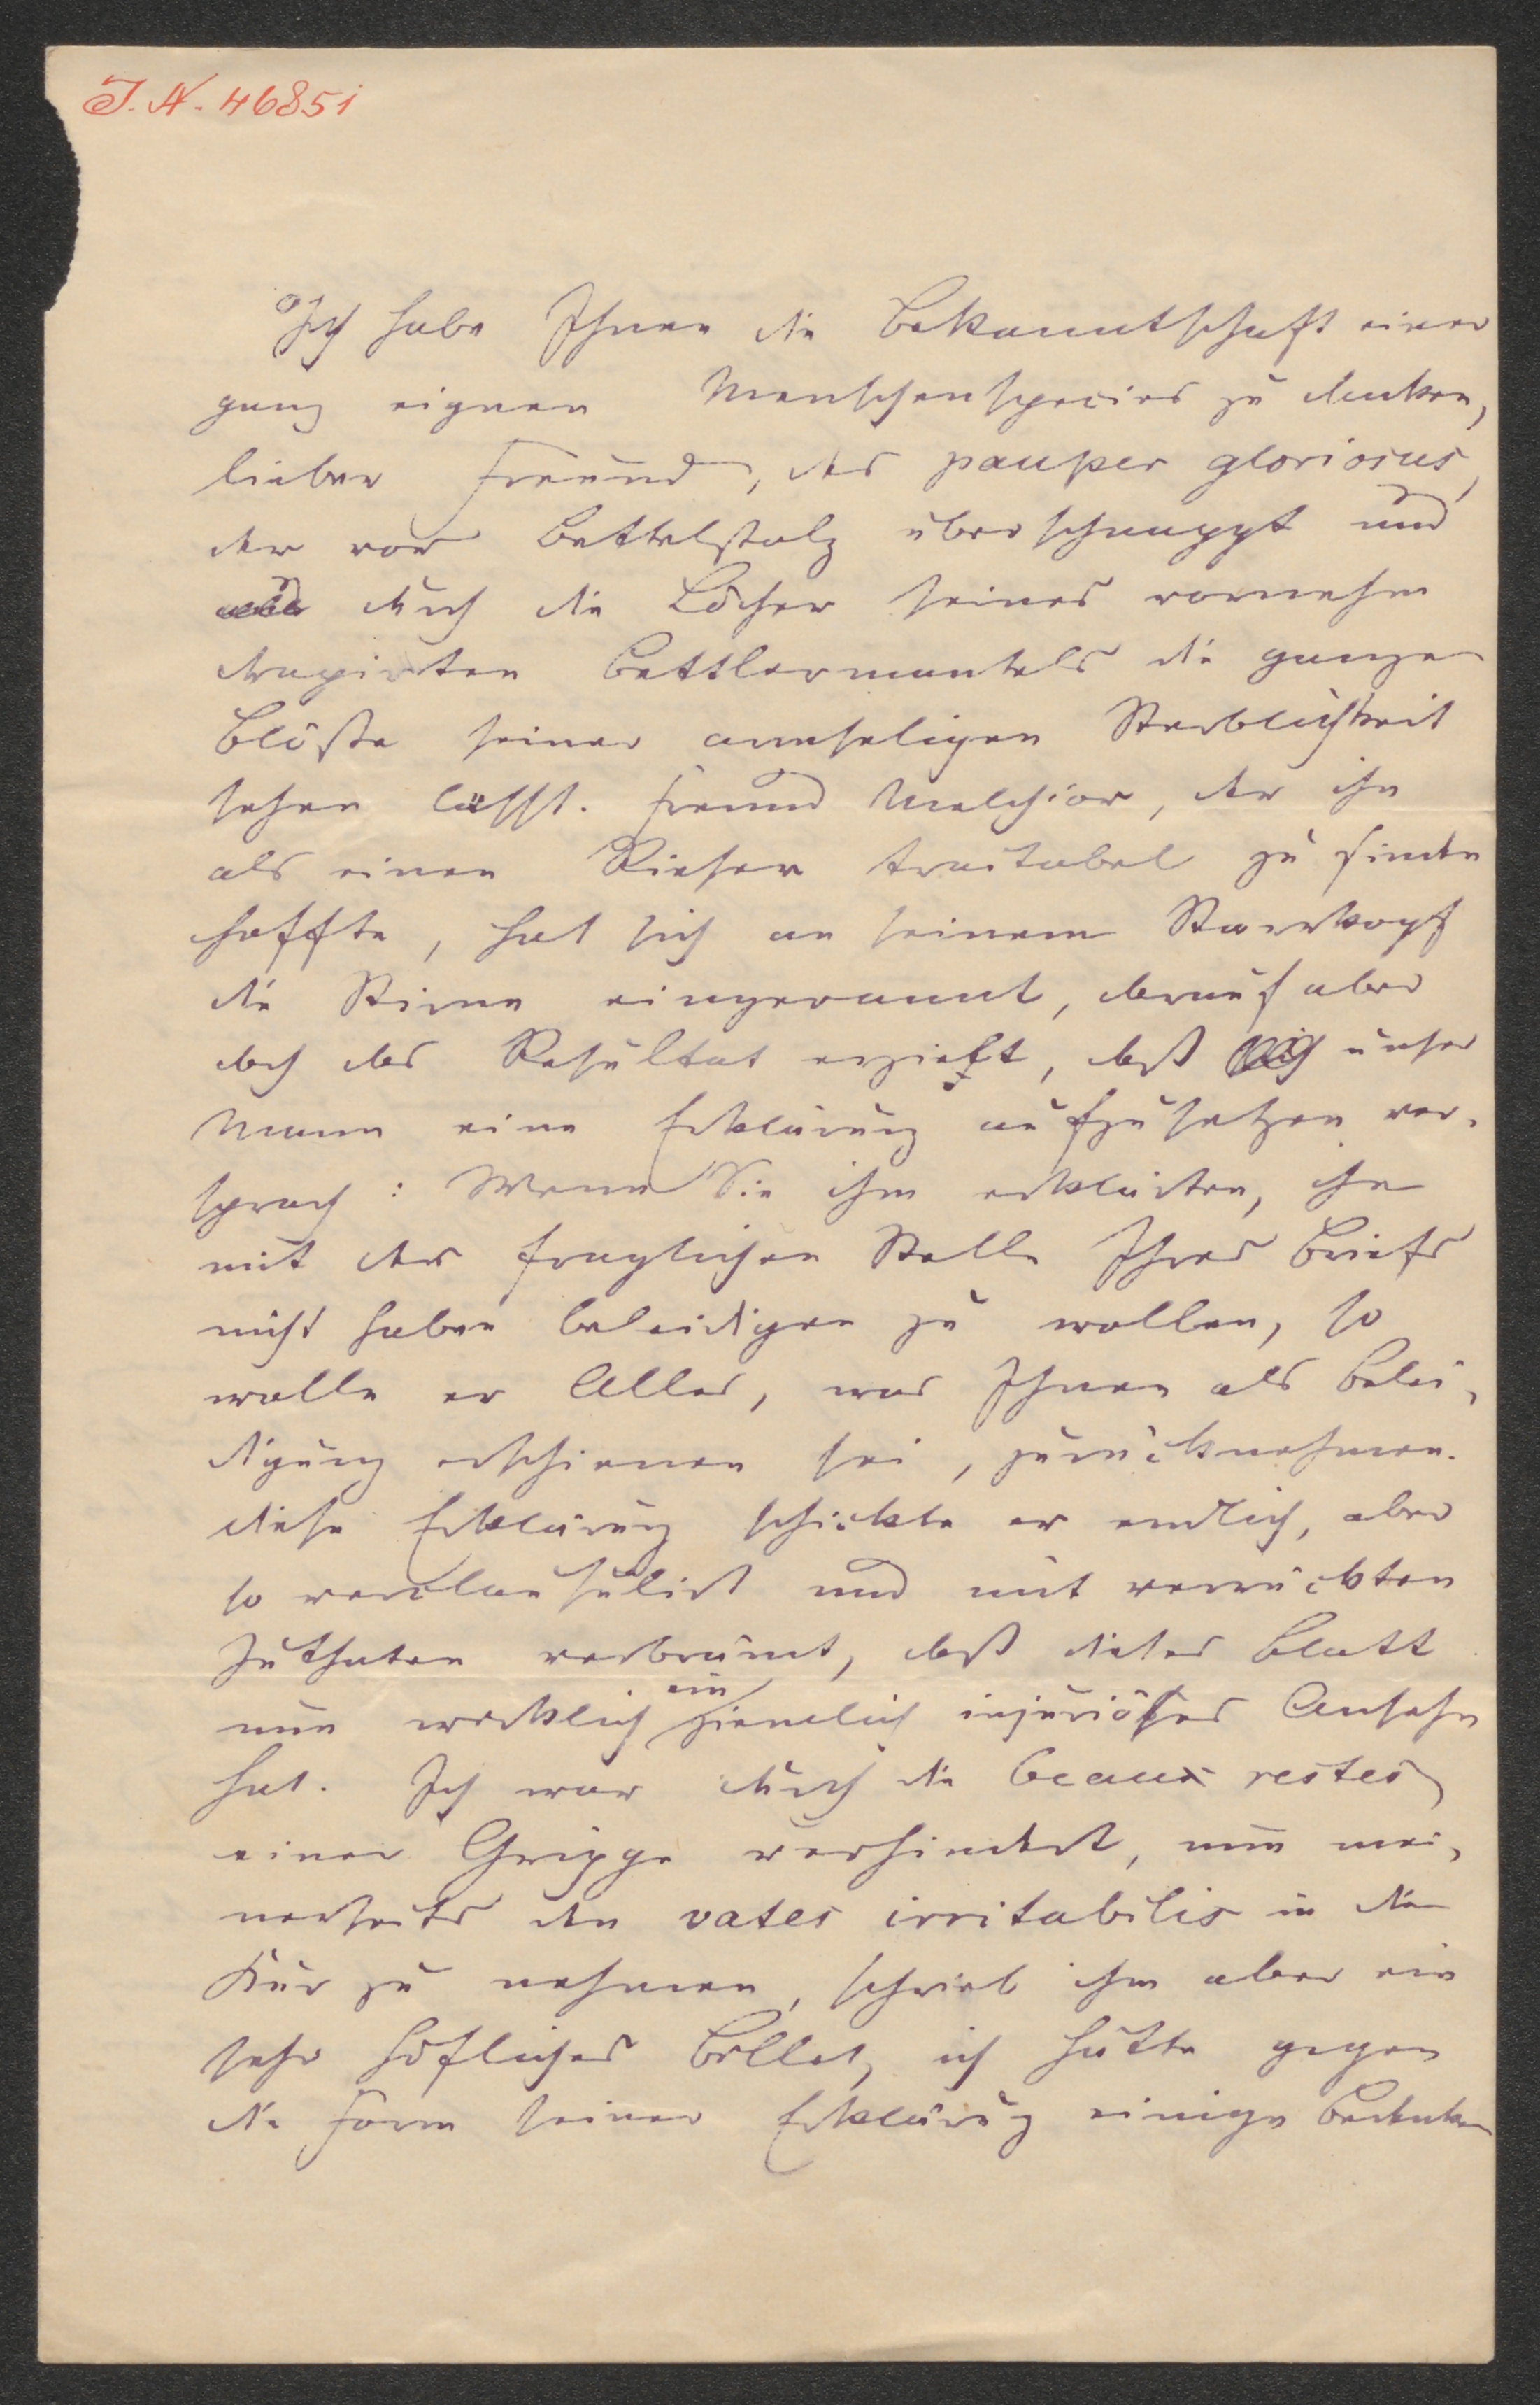 I. N. 46851
Ich habe Ihnen die Bekanntschaft einer
ganz eignen Menschenspecies zu danken,
lieber Freund, des pauper gloriosus,
der vor Bettelstolz überschnappt und
durch die Löcher seines vornehm
drapirten Bettlermantels die ganze
Blöße seiner armseligen Sterblichkeit
sehen läßt. Freund Melchior, der ihn
als einen Rieser tractabel zu finden
hoffte, hat sich an seinem Starrkopf
die Stirne eingerannt, darauf aber
doch das Resultat erzielt, daß unser
Mann eine Erklärung aufzusetzen ver-
sprach: Wenn Sie ihm erklärten, ihn
mit der fraglichen Stelle Ihres Briefs
nicht haben beleidigen zu wollen, so
wolle er Alles, was Ihnen als Belei-
digung erschienen sei, zurücknehmen.
Diese Erklärung schickte er endlich, aber
so verclausulirt und mit verrückten
Zuthaten verbrämt, daß dieses Blatt
nun wirklich ein ziemlich injuriöses Ansehn
hat. Ich war durch die beaux restes
einer Grippe verhindert, nun mei-
nerseits den vates irritabilis in die
Kur zu nehmen, schrieb ihm aber ein
sehr höfliches Billet, ich hätte gegen
die Form seiner Erklärung einige Bedenken